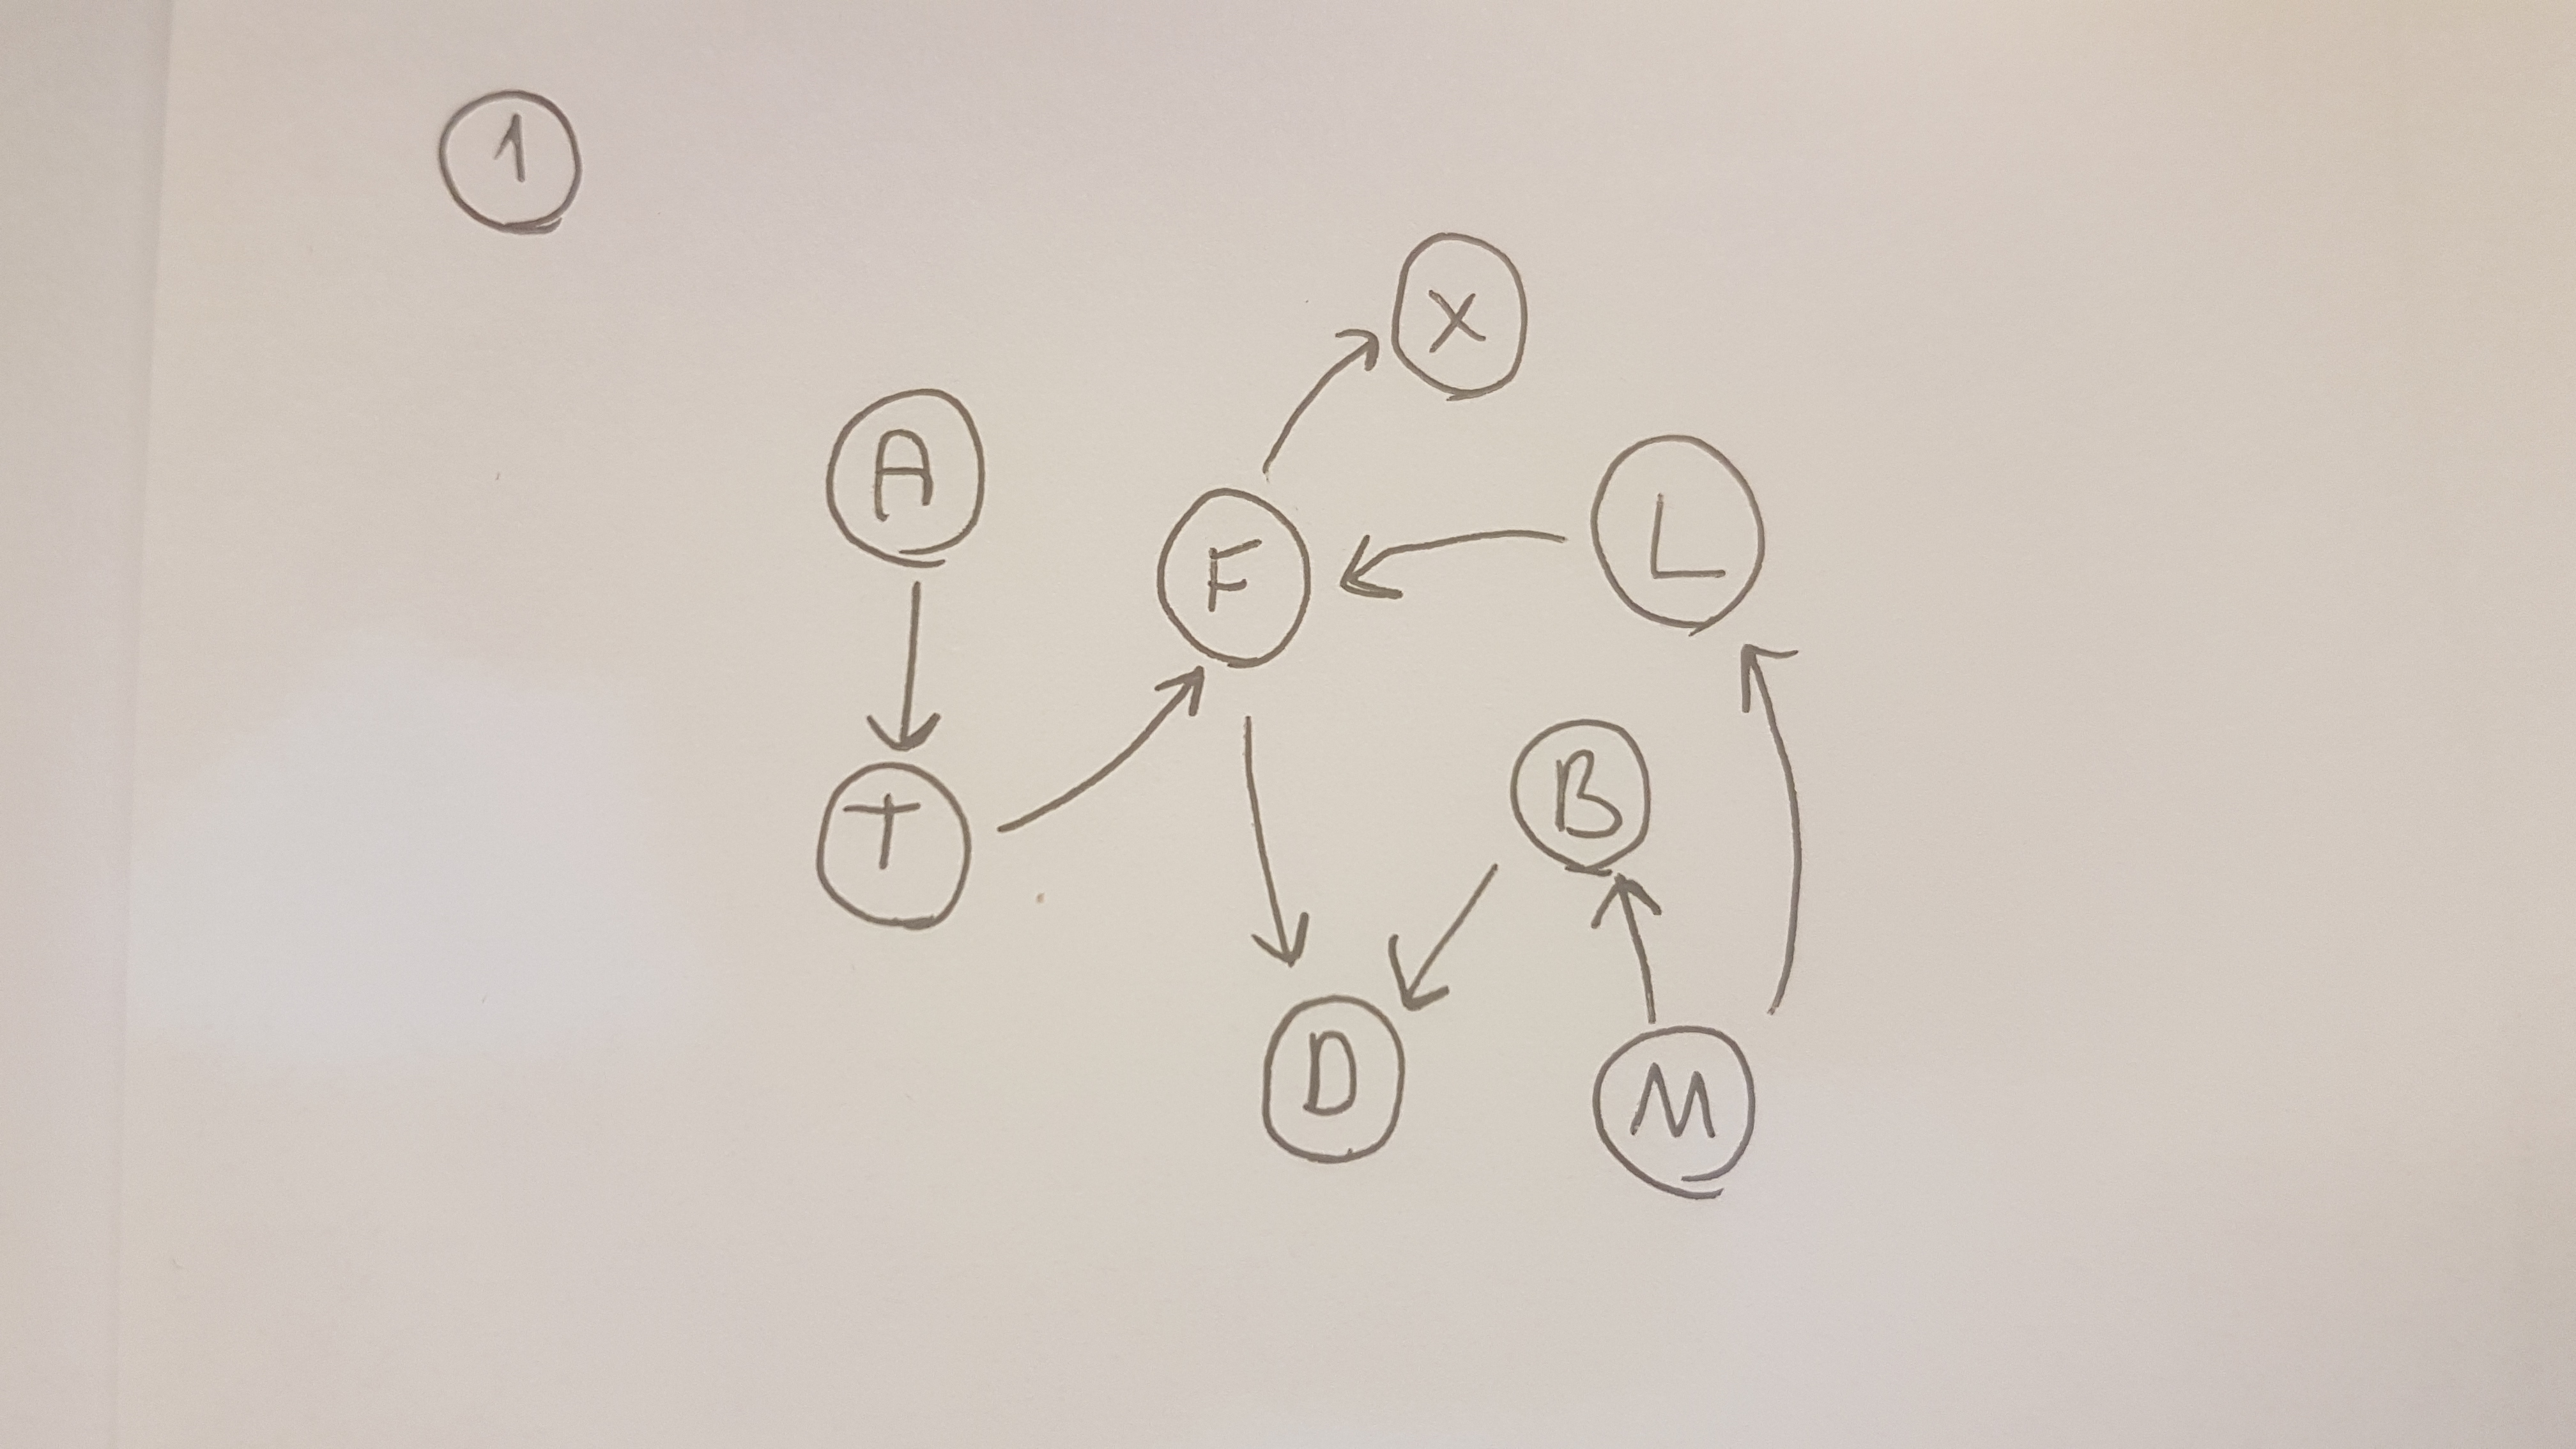 1
X
A
F
L
T
B
D
M